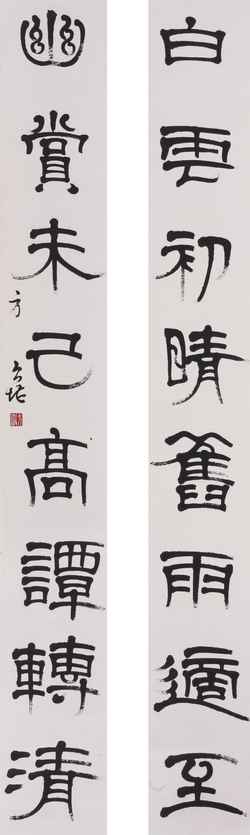 白雲初晴舊雨適至
幽賞未已高譚轉清
方介堪